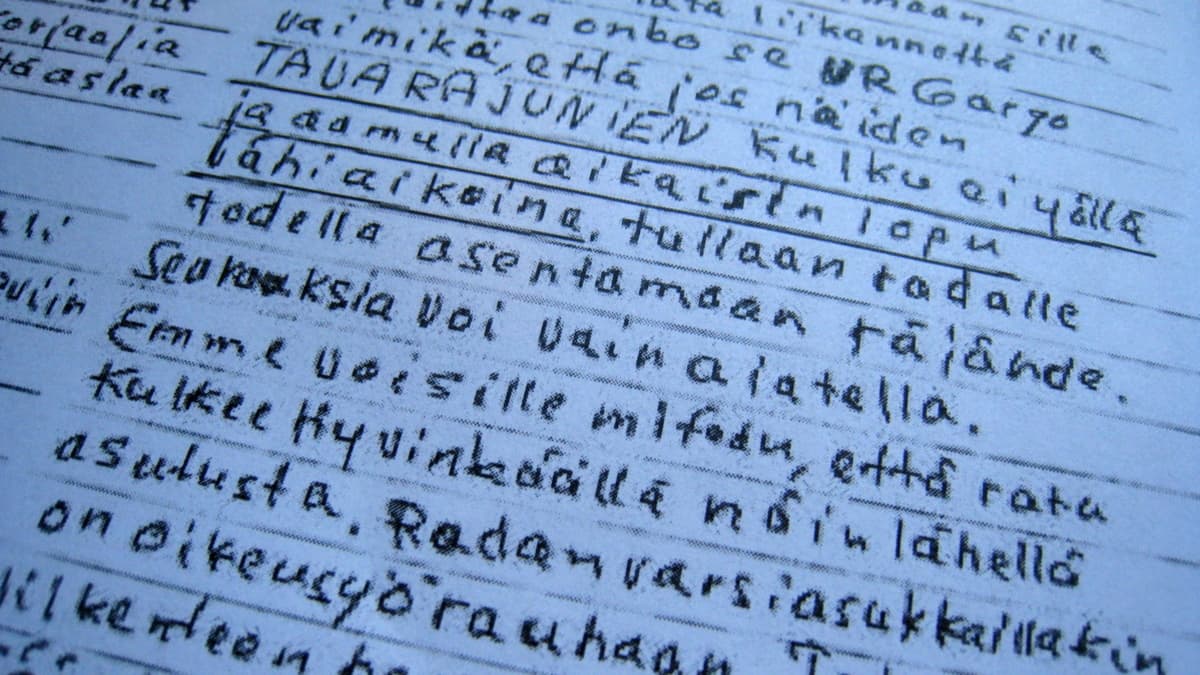 sille
liikannettä
onbo se VR Cargo
orjaajia vaimikä, että jos näiden
täaslaa TAVARAJUNIEN kulku ei yöllä
ja aamulla aikaisin lopu
lähiaikoina, tullaan radalle
todella asentamaan räjähde.
Seurauksia voi vain ajatella.
Emme voi sille mitään, että rata
Kulkee Hyvinkäällä näin lähellä
asutusta. Radanvarsiasukkaillakin
on oikeus yörauhaan